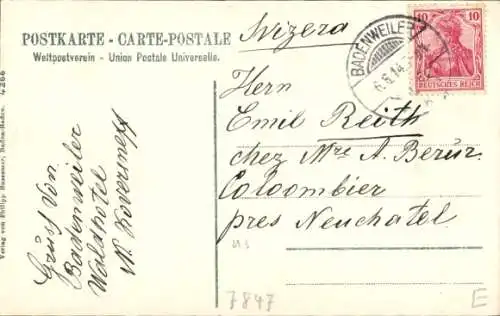 Svizera
POSTKARTE - CARTE-POSTALE
Weltpostverein - Union Postale Universelle.
BADENWEILER
6.6.14
10 10
DEUTSCHES REICH
Herrn
Emil Reith
chez Mre A. Berur
Coloombier
pres Neuchatel
Gruss von
Badenweiler
Waldhotel
W.
Verlag von Philipp Bussemer, Baden-Baden. 4266
7847
E